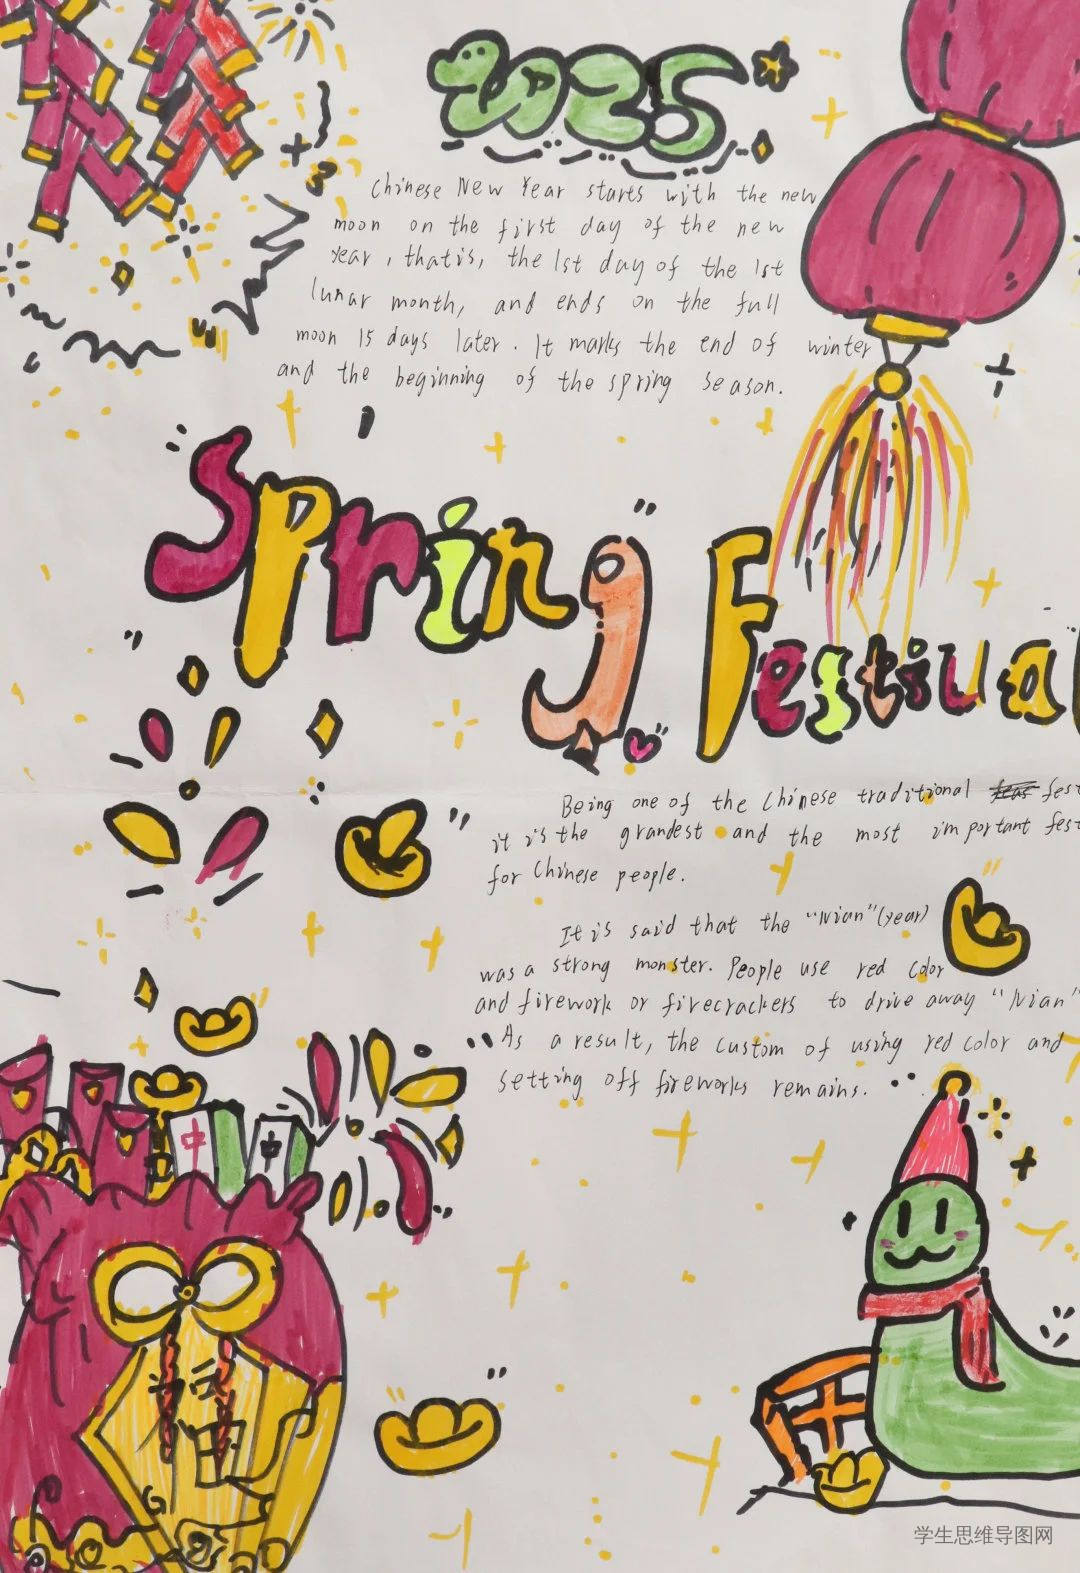 2025
Chinese New Year starts with the new
moon on the first day of the new
year, thatis, the 1st day of the 1st
lunar month, and ends on the full
moon 15 days later. It marks the end of winter
and the beginning of the spring season.
Spring Festival
Being one of the Chinese traditional fest
it is the grandest and the most important fest
for Chinese people.
It is said that the "Nian"(year)
was a strong monster. People use red color
and firework or firecrackers to drive away "Nian"
As a result, the custom of using red color and
setting off fireworks remains.
中 中
学生思维导图网